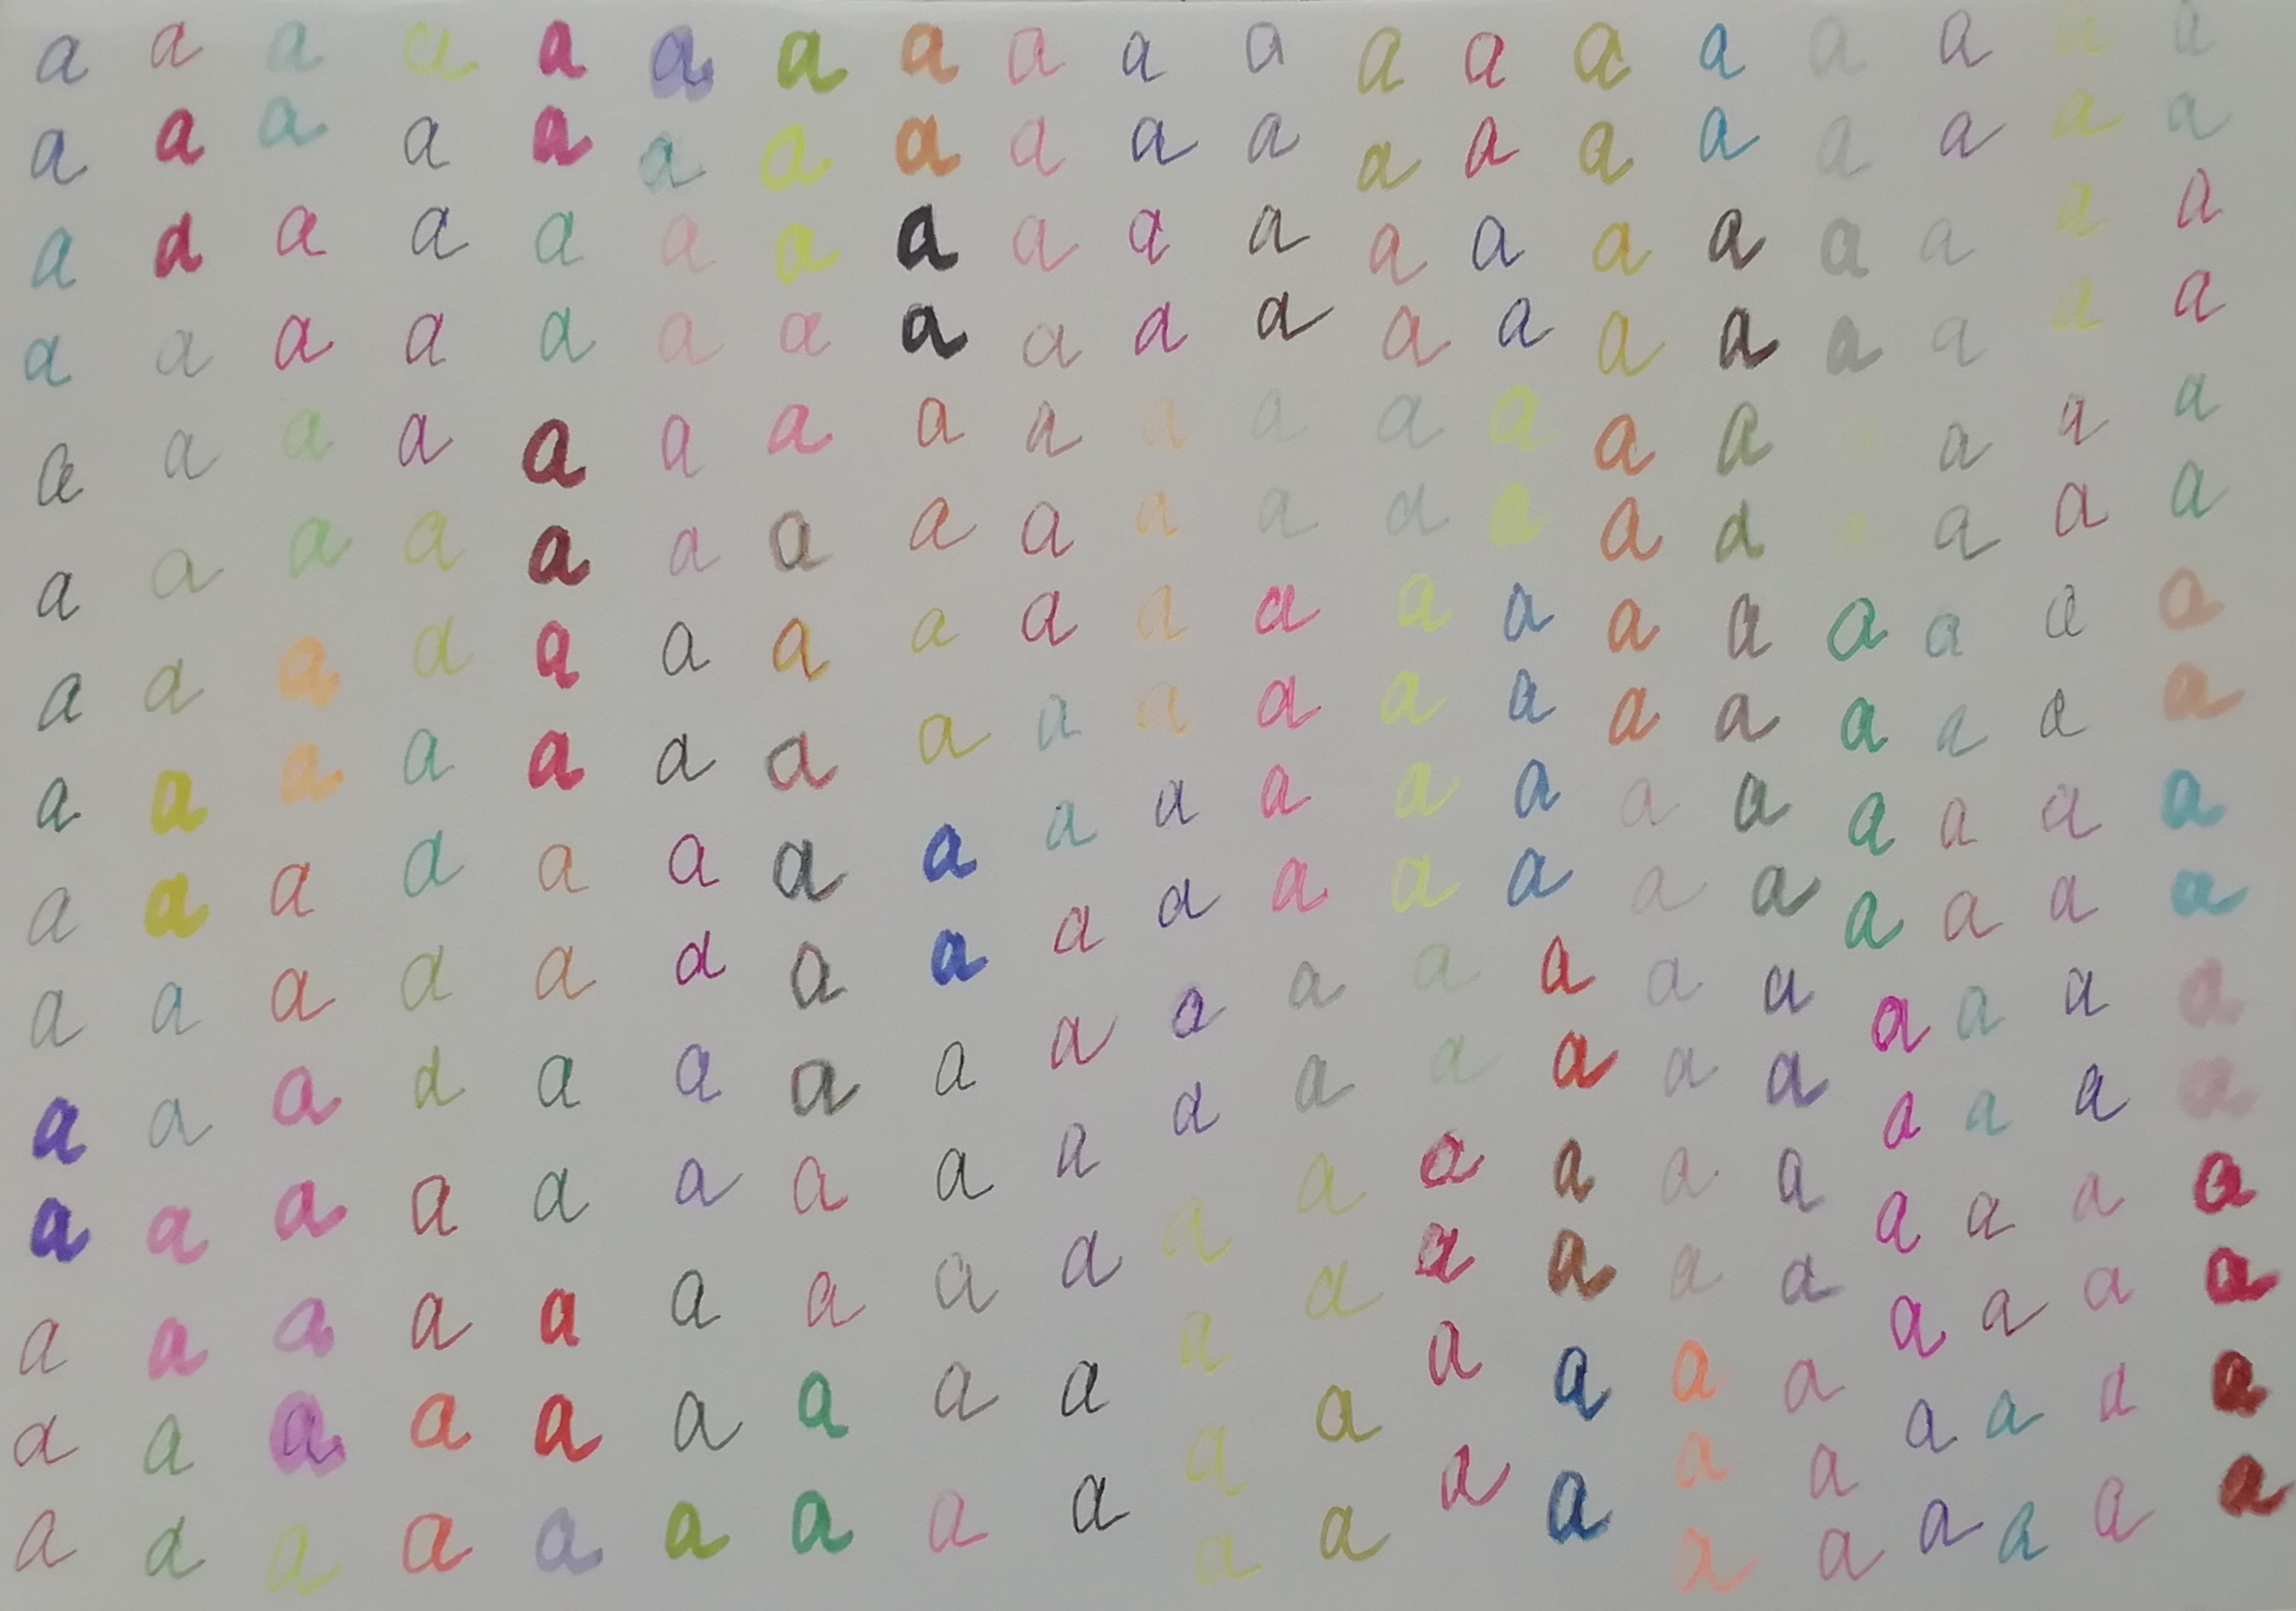 a a a a a a a a a a a a a a a a a a a
a a a a a a a a a a a a a a a a a a a
a a a a a a a a a a a a a a a a a a a
a a a a a a a a a a a a a a a a a a a
a a a a a a a a a a a a a a a a a a a
a a a a a a a a a a a a a a a a a a a
a a a a a a a a a a a a a a a a a a a
a a a a a a a a a a a a a a a a a a a
a a a a a a a a a a a a a a a a a a a
a a a a a a a a a a a a a a a a a a a
a a a a a a a a a a a a a a a a a a a
a a a a a a a a a a a a a a a a a a a
a a a a a a a a a a a a a a a a a a a
a a a a a a a a a a a a a a a a a a a
a a a a a a a a a a a a a a a a a a a
a a a a a a a a a a
a a